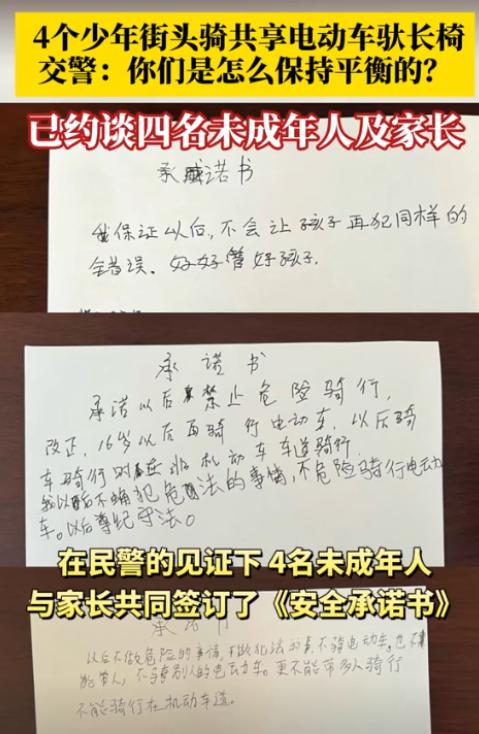 4个少年街头骑共享电动车驮长椅
交警：你们是怎么保持平衡的？
已约谈四名未成年人及家长
承诺书
我保证以后，不会让孩子再犯同样的
错误。好好管好孩子.
承诺书
承诺以后禁止危险骑行,
改正，16岁以后再骑行电动车，以后骑
车骑行到非机动车车道骑行.
我以后不犯危法的事情,不危险骑行电动
车。以后尊纪守法。
在民警的见证下 4名未成年人
与家长共同签订了《安全承诺书》
承诺书
以后不做危险的事情，不做犯法的事，不骑电动车。也不
能带人，不骑别人的电动车。更不能带多人骑行
不能骑行在机动车道。